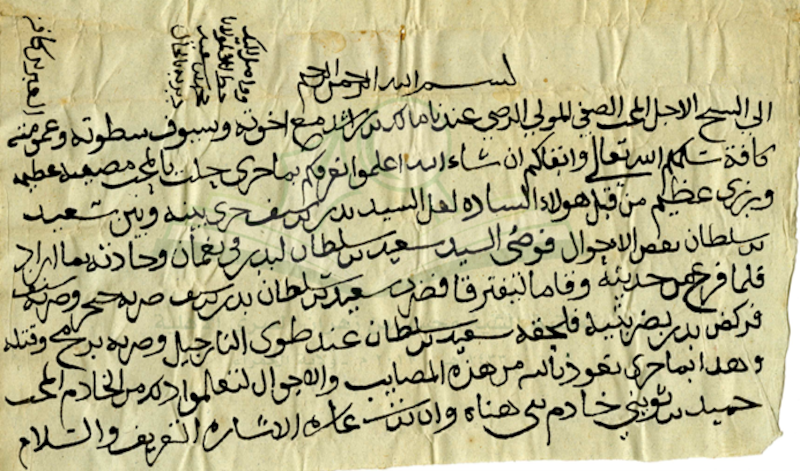 بسم الله الرحمن الرحيم
الى الشيخ الاجل المحب الصفي المولى الرضي عندنا ماكد بن راشد مع اخوته وبسيوف سطوته وعمومته
كافة سلمكم الله تعالى وابقاكم ان شاء الله اعلموا نعرفكم بما جرى جلت يا المحب مصيبة عظيمة
ورزي عظيم من قبل هولاء الساده لعل السيد بدر بن سيف جرى بينه وبين سعيد
بن سلطان بعض الاحوال فوصل السيد سعيد بن سلطان لبدر في نعمان وحادثه بما اراد
فلما فرغ من حديثه وقاما لتفترقا فضرب سعيد بن سلطان بدر بن سيف ضربة خنجر وضربة سيف
فركض بدر بضربتيه فلحقه سعيد بن سلطان عند طوى النارجيل وضربه برمح وقتله
وهذا بما جرى نعوذ بالله من هذه المصايب والاحوال لتعالموا ذلك من الخادم المحب
حميد بن ثويني خادم بني هناه وان تكن عازه الاشاره التعريف والسلام
وواصل اليك
خط